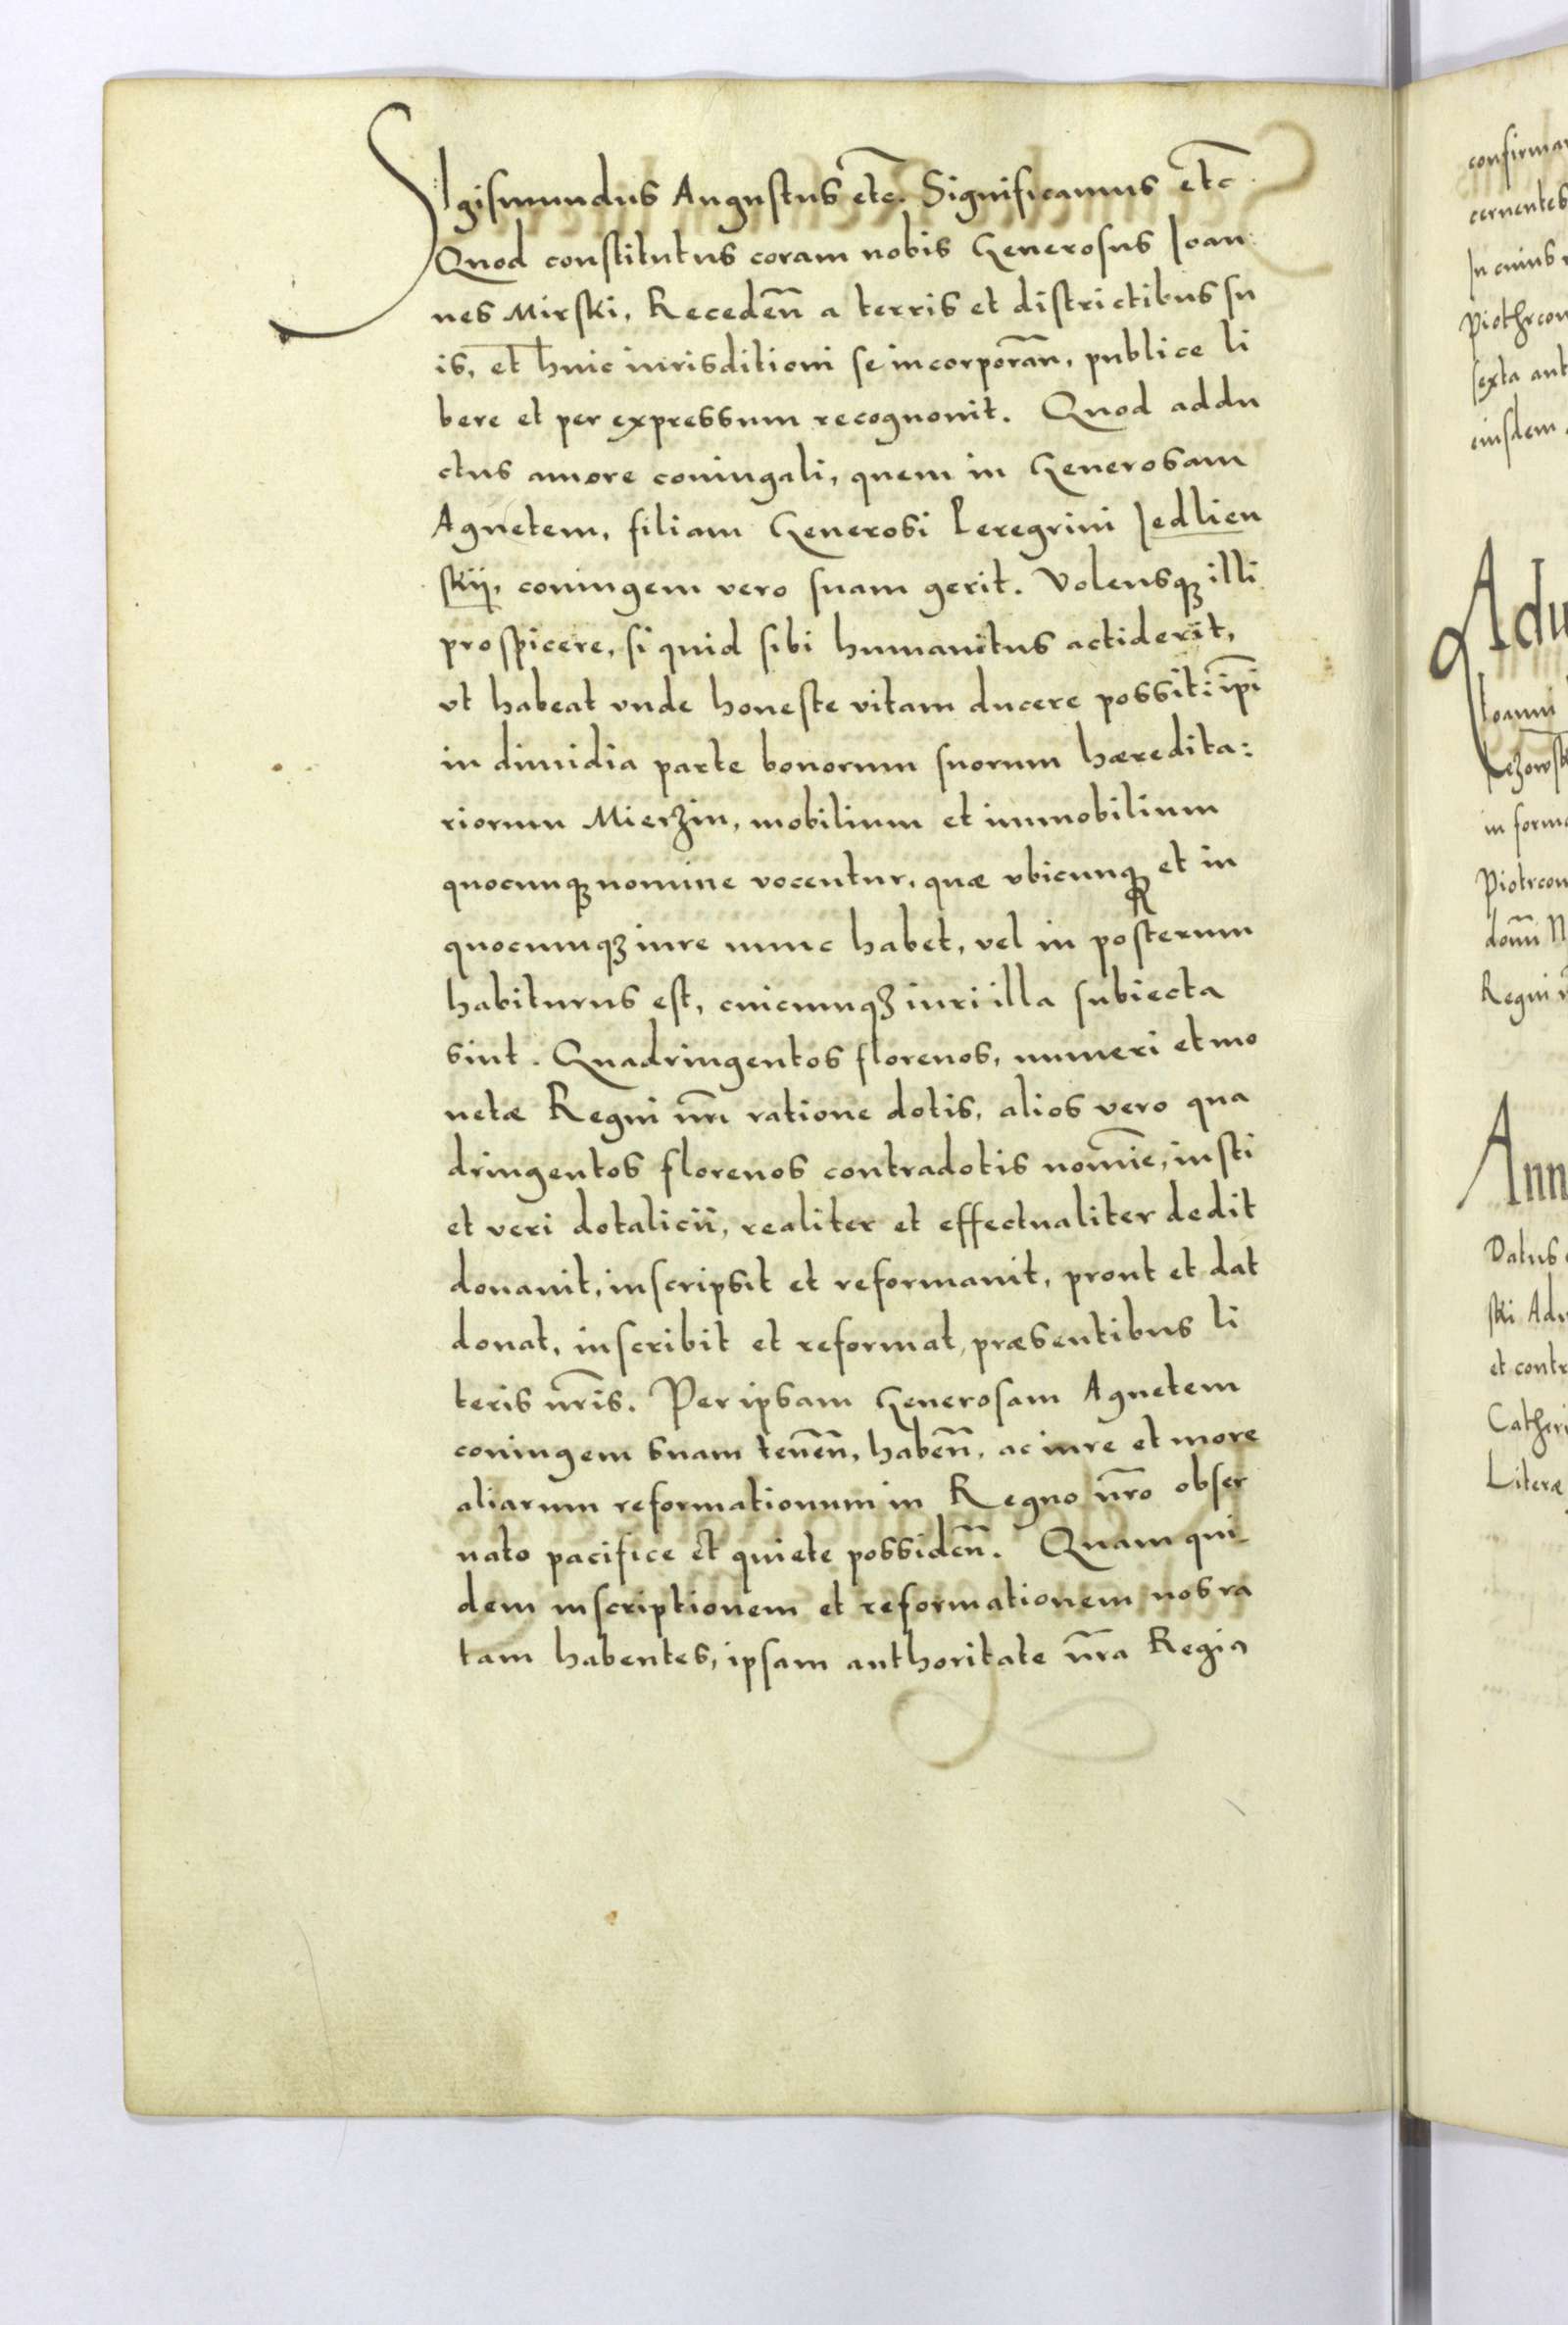 Sigismundus Augustus etc. Significamus etc.
Quod constitutus coram nobis Generosus Ioan:
nes Mirski, Recedeñ a terris et districtibus su
is, et huic iurisditioni se incorporañ, publice li
bere et per expressum recognouit. Quod addu
ctus amore coniugali, quem in Generosam
Agnetem, filiam Generosi Peregrini Jedlien
skij, coniugem vero suam gerit. Volensqꝫ illi
prospicere, si quid sibi humanitus actiderit,
vt habeat vnde honeste vitam ducere possit: ip̄i
in dimidia parte bonorum suorum hæredita:
riorum Mierzin, mobilium et immobilium
quocunqꝫ nomine vocentur, quæ vbicunqꝫ et in
quocumqꝫ iure nunc habet, vel in posterum
habiturus est, cuicumqꝫ iuri illa subiecta
sint. Quadringentos florenos, numeri et mo
netæ Regni nr̄i ratione dotis, alios vero qua
dringentos florenos contradotis nomīe, iusti
et veri dotalicii, realiter et effectualiter dedit
donauit, inscripsit et reformauit, prout et dat
donat, inscribit et reformat, præsentibus li
teris nr̄is. Per ipsam Generosam Agnetem
coniugem suam teneñ, habeñ, ac iure et more
aliarum reformationum in Regno nr̄o obser
uato pacifice et quiete possideñ. Quam qui-
dem inscriptionem et reformationem nos ra
tam habentes, ipsam authoritate nr̄a Regia
cernentes
In cuius
sexta
eiusdem
Ioanni
in
Regni
Ann
Datus
ski
et
Literæ